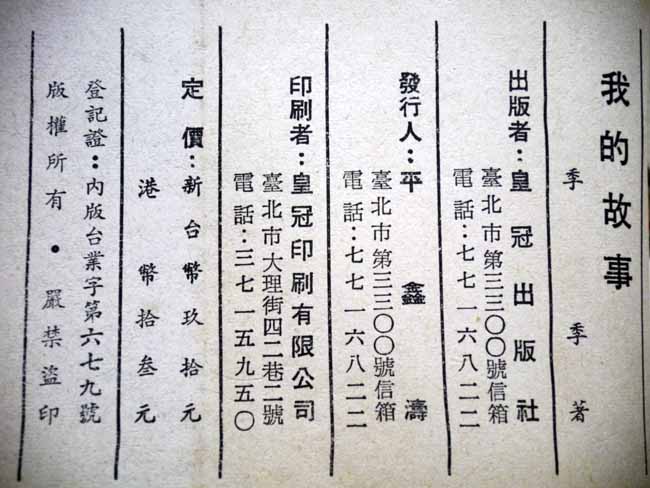 我的故事
季季著
出版者：皇冠出版社
臺北市第三三〇〇號信箱
電話：七七一六八二二
發行人：平鑫濤
臺北市第三三〇〇號信箱
電話：七七一六八二二
印刷者：皇冠印刷有限公司
臺北市大理街四二巷二號
電話：三七一五九五〇
定價：新台幣玖拾元
港幣拾叁元
登記證：內版台業字第六七九號
版權所有・嚴禁盜印